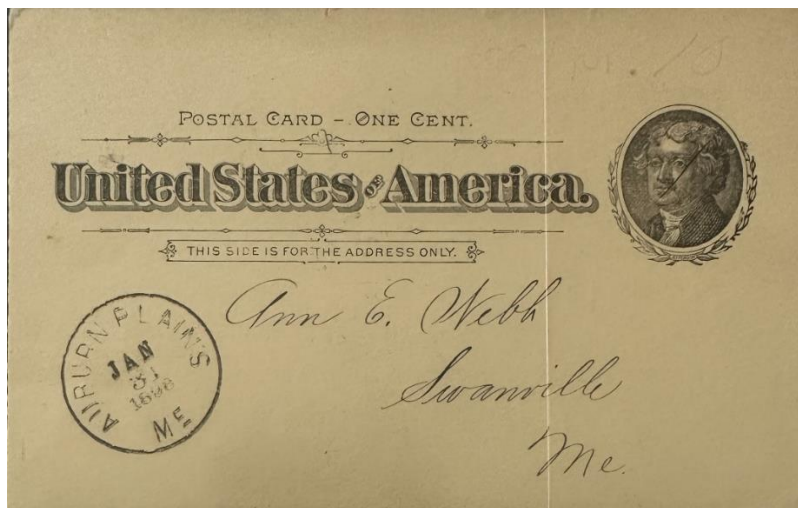 POSTAL CARD – ONE CENT.
United States OF America.
THIS SIDE IS FOR THE ADDRESS ONLY.
Ann E. Webb
Swanville
Me.
AUBURN PLAINS
JAN
31
1898
ME